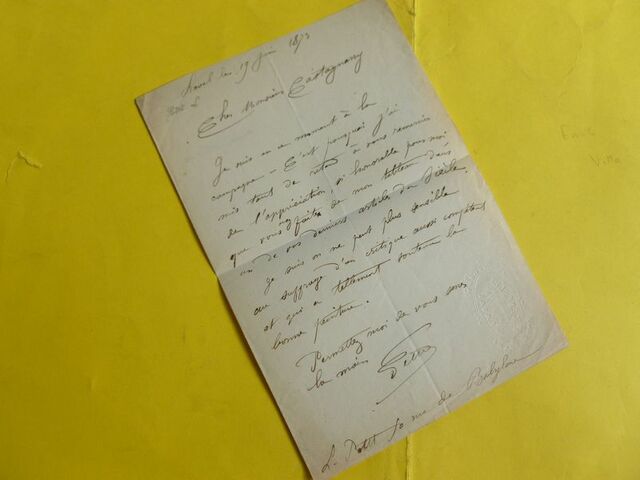 le 19 juin 1873
Cher Monsieur Castagnary
Je suis en ce moment à la
campagne – C'est pourquoi j'ai
mis tant de retard à vous remercier
de l'appréciation, si honorable pour moi
que vous faites de mon tableau dans
un de vos derniers articles du Siècle.
Je suis on ne peut plus sensible
au suffrage d'un critique aussi compétent
et qui a tellement soutenu la
bonne peinture.
Permettez moi de vous serrer
la main
rue de Babylone